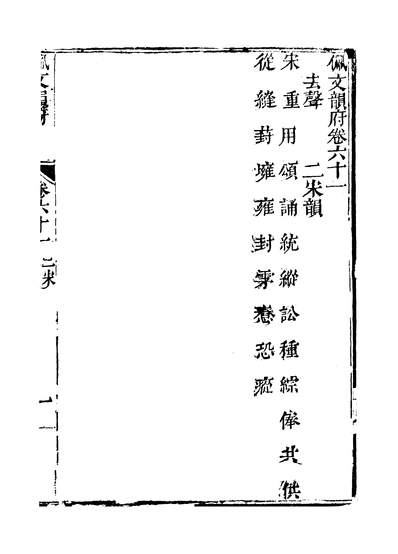 佩文韻府卷六十一
去聲 二宋韻
宋重用頌誦統縱訟種綜俸共供
從縫葑壅雍封雺恐
卷六十一 二宋
一